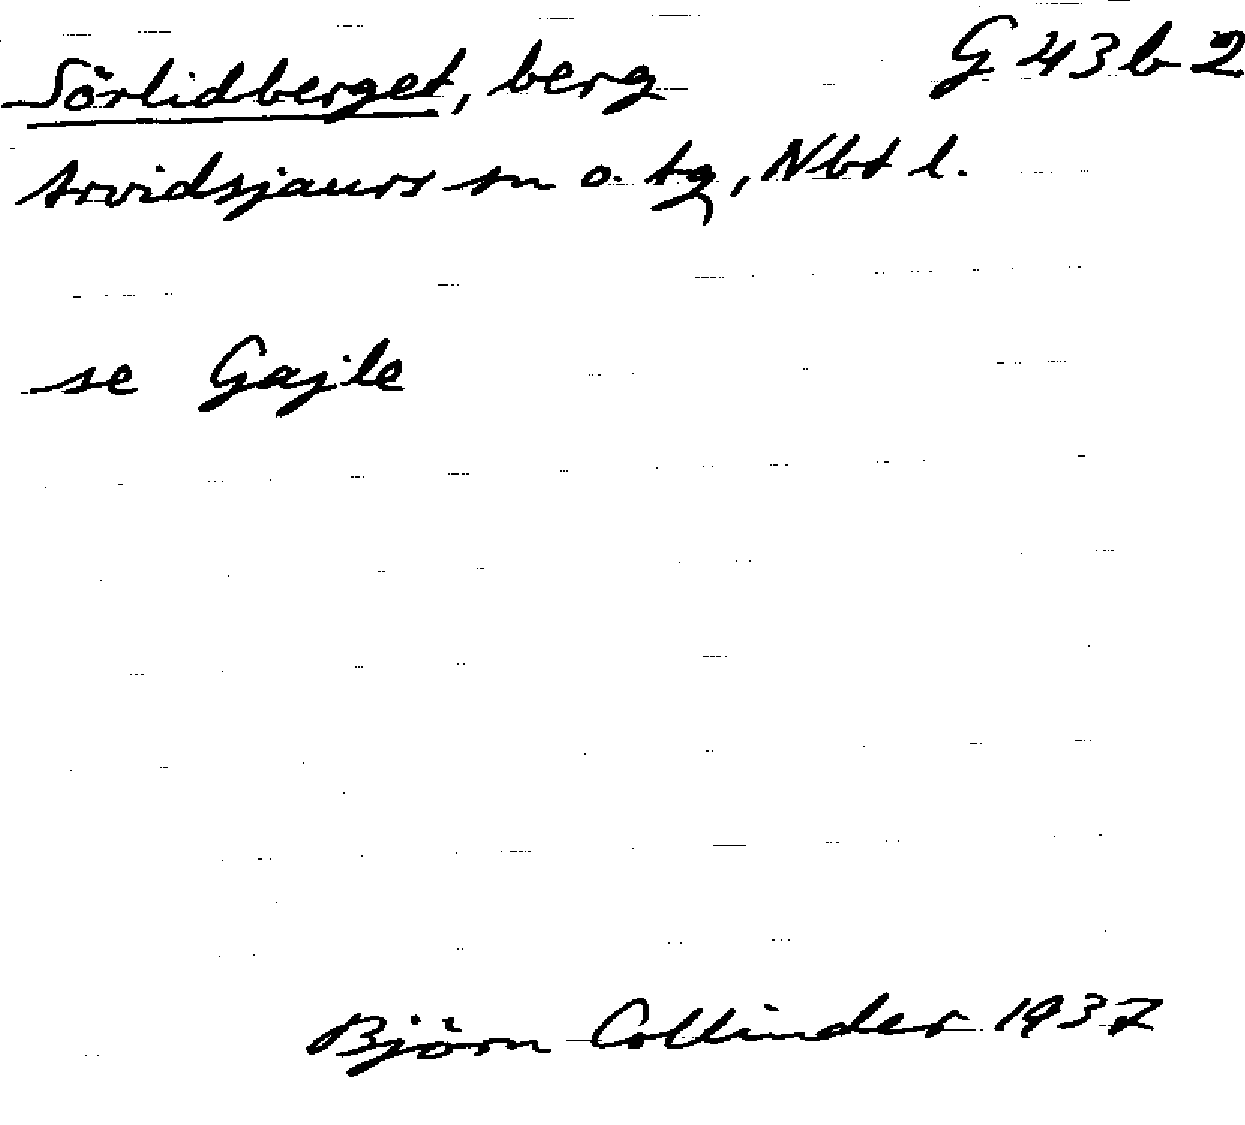 Sörlidberget, berg G 43 b 2
Arvidsjaurs sn o. tg, Nbt l.
se Gajle
Björn Collinder 1937